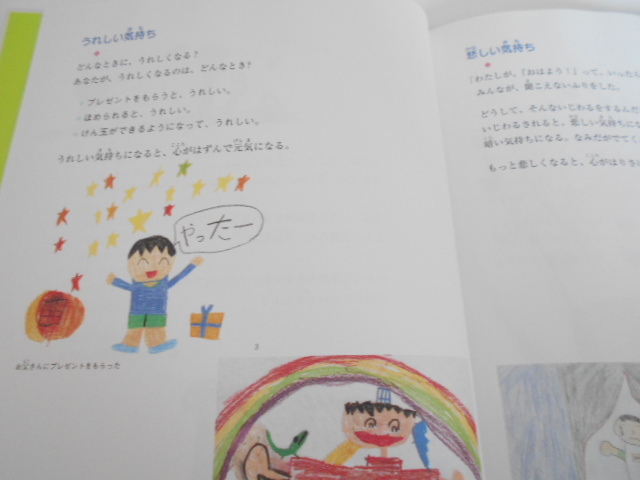 うれしい気持ち
どんなときに、うれしくなる？
あなたが、うれしくなるのは、どんなとき？
プレゼントをもらうと、うれしい。
ほめられると、うれしい。
けん玉ができるようになって、うれしい。
うれしい気持ちになると、心がはずんで元気になる。
やったー
3
お父さんにプレゼントをもらった
悲しい気持ち
「わたしが、「おはよう！」って、いった
みんなが、聞こえないふりをした。
どうして、そんないじわるをするんだ
いじわるされると、悲しい気持ちにな
暗い気持ちになる。なみだがでてく
もっと悲しくなると、心がはりさ